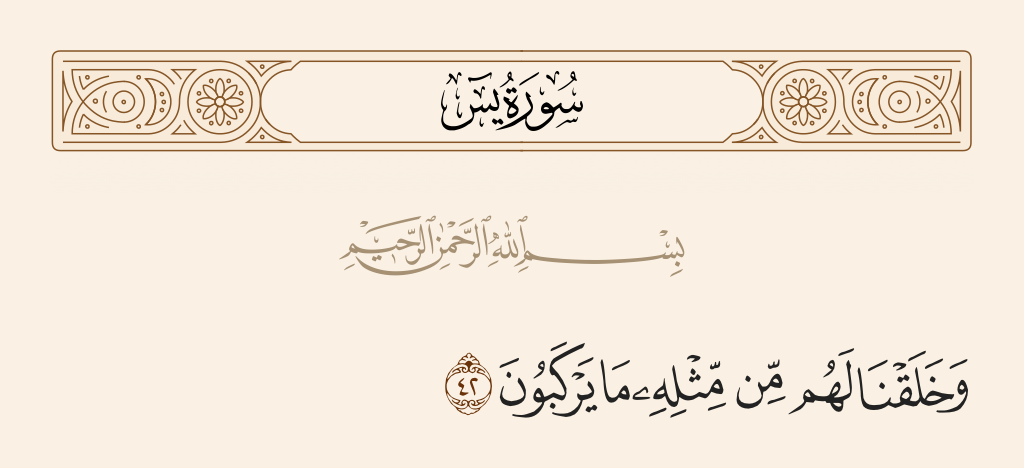 سُورَةُ يسٓ
بِسْمِ ٱللَّهِ ٱلرَّحْمَٰنِ ٱلرَّحِيمِ
وَخَلَقْنَا لَهُم مِّن مِّثْلِهِۦ مَا يَرْكَبُونَ ٤٢